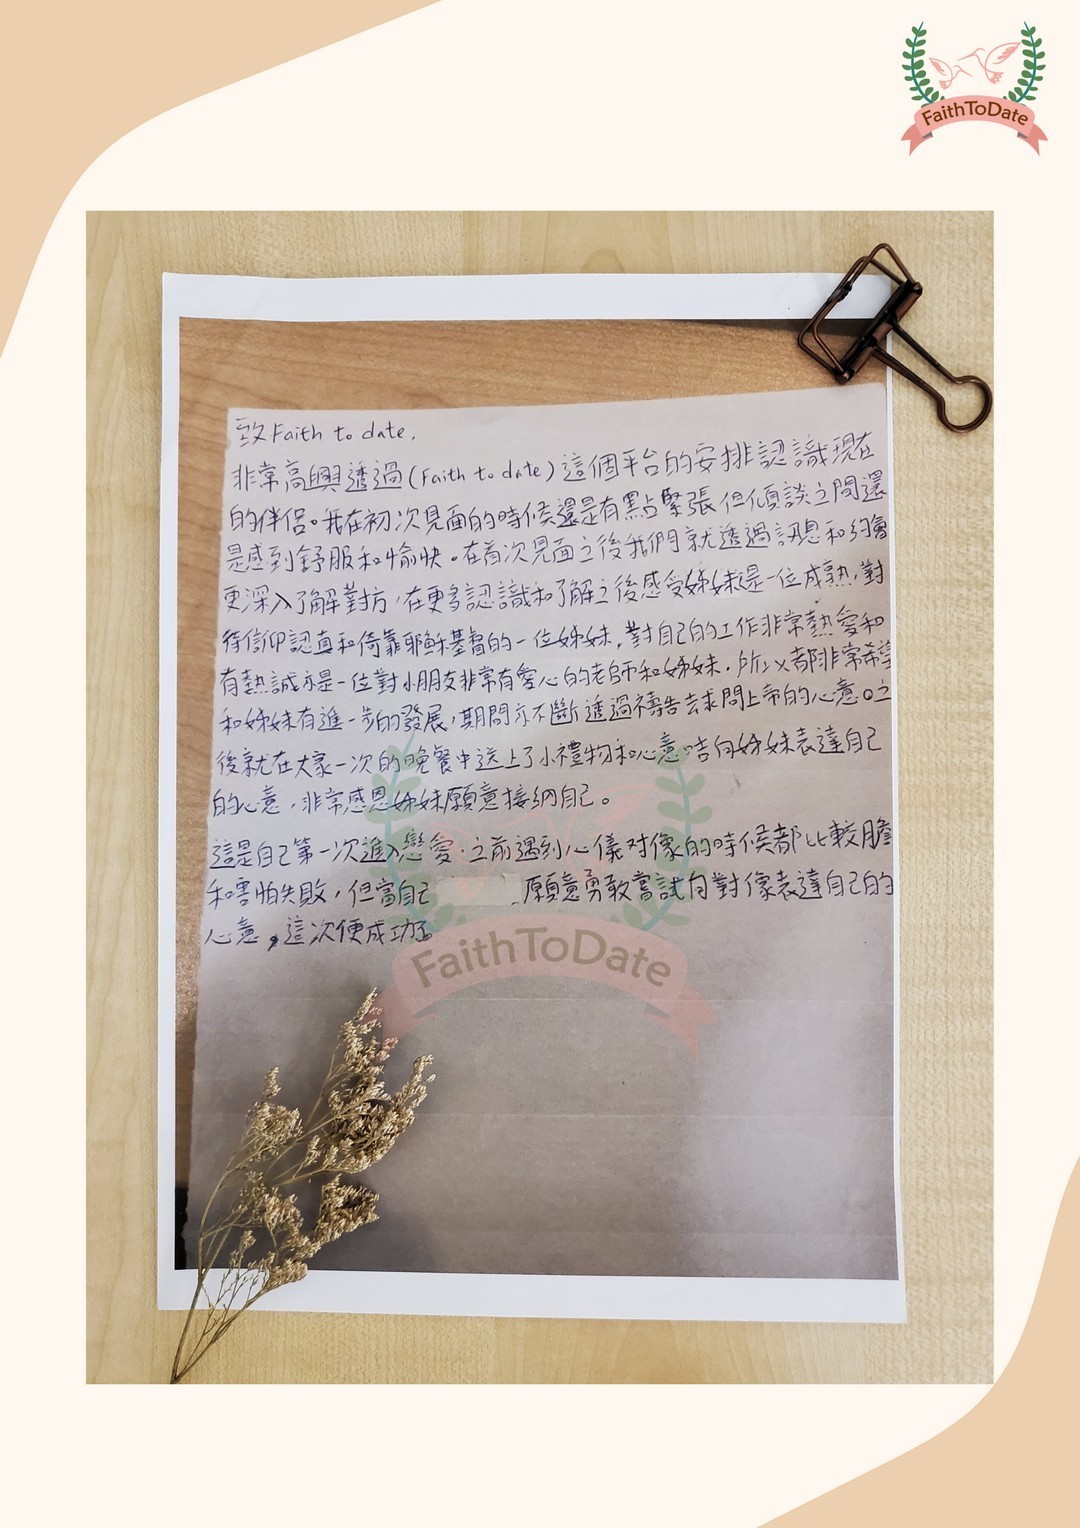 FaithToDate
致 Faith to date,
非常高興透過(Faith to date)這個平台的安排認識現在
的伴侶。我在初次見面的時候還是有點緊張但傾談之間還
是感到舒服和愉快。在首次見面之後我們就透過訊息和約會
更深入了解對方,在更多認識和了解之後感受姊妹是一位成熟,對
待信仰認真和倚靠耶穌基督的一位姊妹,對自己的工作非常熱愛和
有熱誠亦是一位對小朋友非常有愛心的老師和姊妹.所以都非常希望
和姊妹有進一步的發展,期間亦不斷透過禱告去求問上帝的心意。之
後就在大家一次的晚餐中送上了小禮物和心意咭向姊妹表達自己
的心意,非常感恩姊妹願意接納自己。
這是自己第一次進入戀愛.之前遇到心儀对像的時候都比較膽
和害怕失敗,但當自己 願意勇敢嘗試向對像表達自己的
心意,這次便成功
FaithToDate